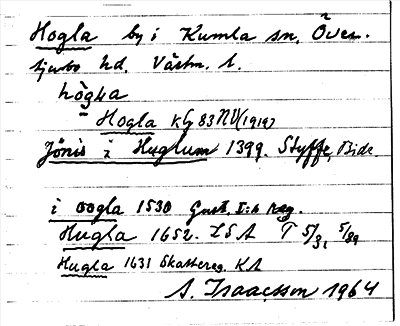 Hogla by i Kumla sn, Över-
tjurbo hd. Västm. l.
hògla
Hogla KG 83 NV (1919)
Jönis i Huglum 1399. Styffe, Bidr.
i oogla 1530 Gust. I:s reg.
Hugla 1652. LSA T 5/31, 5/89
Hugla 1631 Skattereg. KA
A. Isaacsson 1964